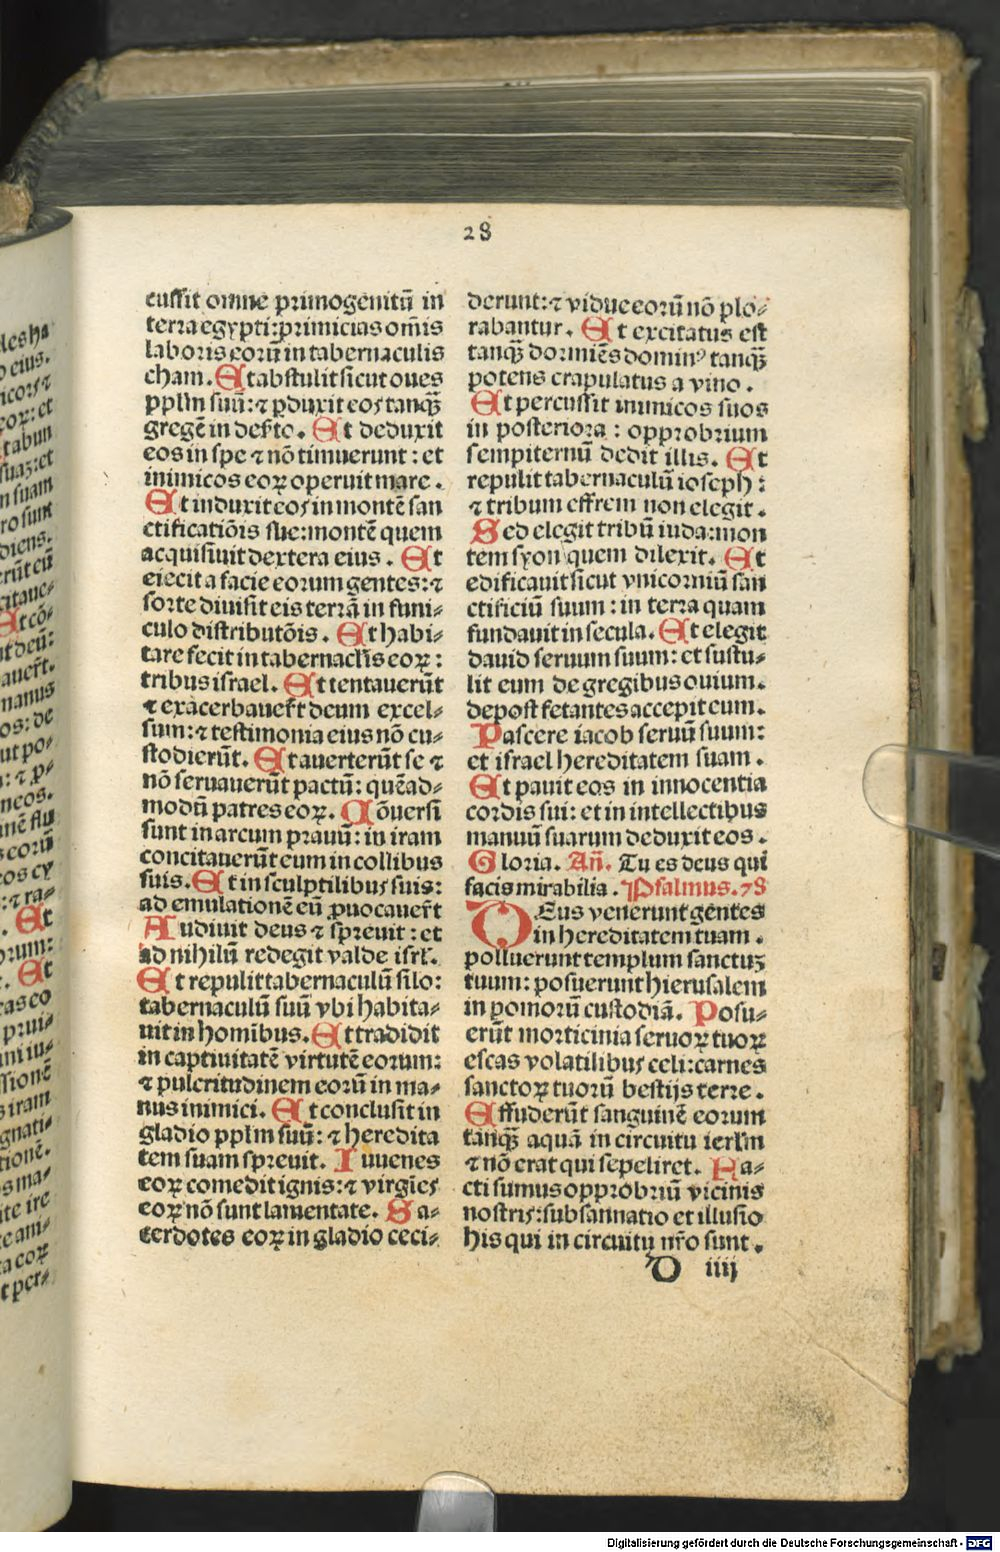 28
cussit omne primogenitū in
terra egypti: primicias om̄is
laboris eorū in tabernaculis
cham. Et abstulit sicut oues
pplm suū: ⁊ ꝑduxit eos tanqȝ̄
gregē in deſ̄to. Et deduxit
eos in spe ⁊ nō timuerunt: et
inimicos eoꝝ operuit mare.
Et induxit eos in montē san
ctificatiōis sue: montē quem
acquisiuit dextera eius. Et
eiecit a facie eorum gentes: ⁊
sorte diuisit eis terrā in funi⸗
culo distributōis. Et habi⸗
tare fecit in tabernacl̄is eoꝝ:
tribus israel. Et tentauerūt
⁊ exacerbauer̄t deum excel⸗
sum: ⁊ testimonia eius nō cu⸗
stodierūt. Et auerterūt se ⁊
nō seruauerūt pactū: quēad⸗
modū patres eoꝝ. Cōuersi
sunt in arcum prauū: in iram
concitauerūt eum in collibus
suis. Et in sculptilibus suis:
ad emulationē eū ꝓuocauer̄t
Audiuit deus ⁊ spreuit: et
ad nihilū redegit valde isrl̄.
Et repulit tabernaculū silo:
tabernaculū suū vbi habita⸗
uit in homībus. Et tradidit
in captiuitatē virtutē eorum:
⁊ pulcritudinem eorū in ma⸗
nus inimici. Et conclusit in
gladio pplm suū: ⁊ heredita
tem suam spreuit. Iuuenes
eoꝝ comedit ignis: ⁊ virgīes
eoꝝ nō sunt lamentate. Sa⸗
cerdotes eoꝝ in gladio ceci⸗
derunt: ⁊ vidue eorū nō plo⸗
rabantur. Et excitatus est
tanqȝ̄ dormiēs dominꝰ tanqȝ̄
potens crapulatus a vino.
Et percussit inimicos suos
in posteriora: opprobrium
sempiternū dedit illis. Et
repulit tabernaculū ioseph:
⁊ tribum effrem non elegit.
Sed elegit tribū iuda: mon
tem syon quem dilexit. Et
edificauit sicut vnicorniū san
ctificiū suum: in terra quam
fundauit in secula. Et elegit
dauid seruum suum: et sustu⸗
lit eum de gregibus ouium.
de post fetantes accepit eum.
Pascere iacob seruū suum:
et israel hereditatem suam.
Et pauit eos in innocentia
cordis sui: et in intellectibus
manuū suarum deduxit eos.
Gloria. An̄. Tu es deus qui
facis mirabilia. Psalmus. 78
DEus venerunt gentes
in hereditatem tuam.
polluerunt templum sanctuꝫ
tuum: posuerunt hierusalem
in pomorū custodiā. Posu⸗
erūt morticinia seruoꝝ tuoꝝ
escas volatilibus celi: carnes
sanctoꝝ tuorū bestijs terre.
Effuderūt sanguinē eorum
tanqȝ̄ aquā in circuitu ierl̄m
⁊ nō erat qui sepeliret. Fa⸗
cti sumus opprobriū vicinis
nostris: subsannatio et illusio
his qui in circuitu nr̄o sunt.
D iiij
Digitalisierung gefördert durch die Deutsche Forschungsgemeinschaft - DFG